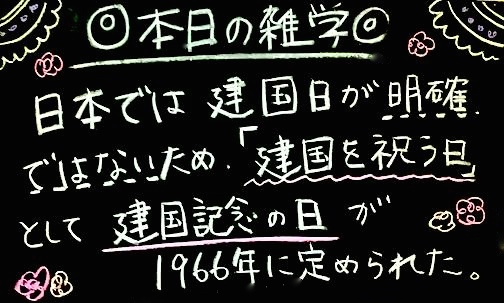 ◎本日の雑学◎
日本では建国日が明確
ではないため、「建国を祝う日」
として建国記念の日が
1966年に定められた。